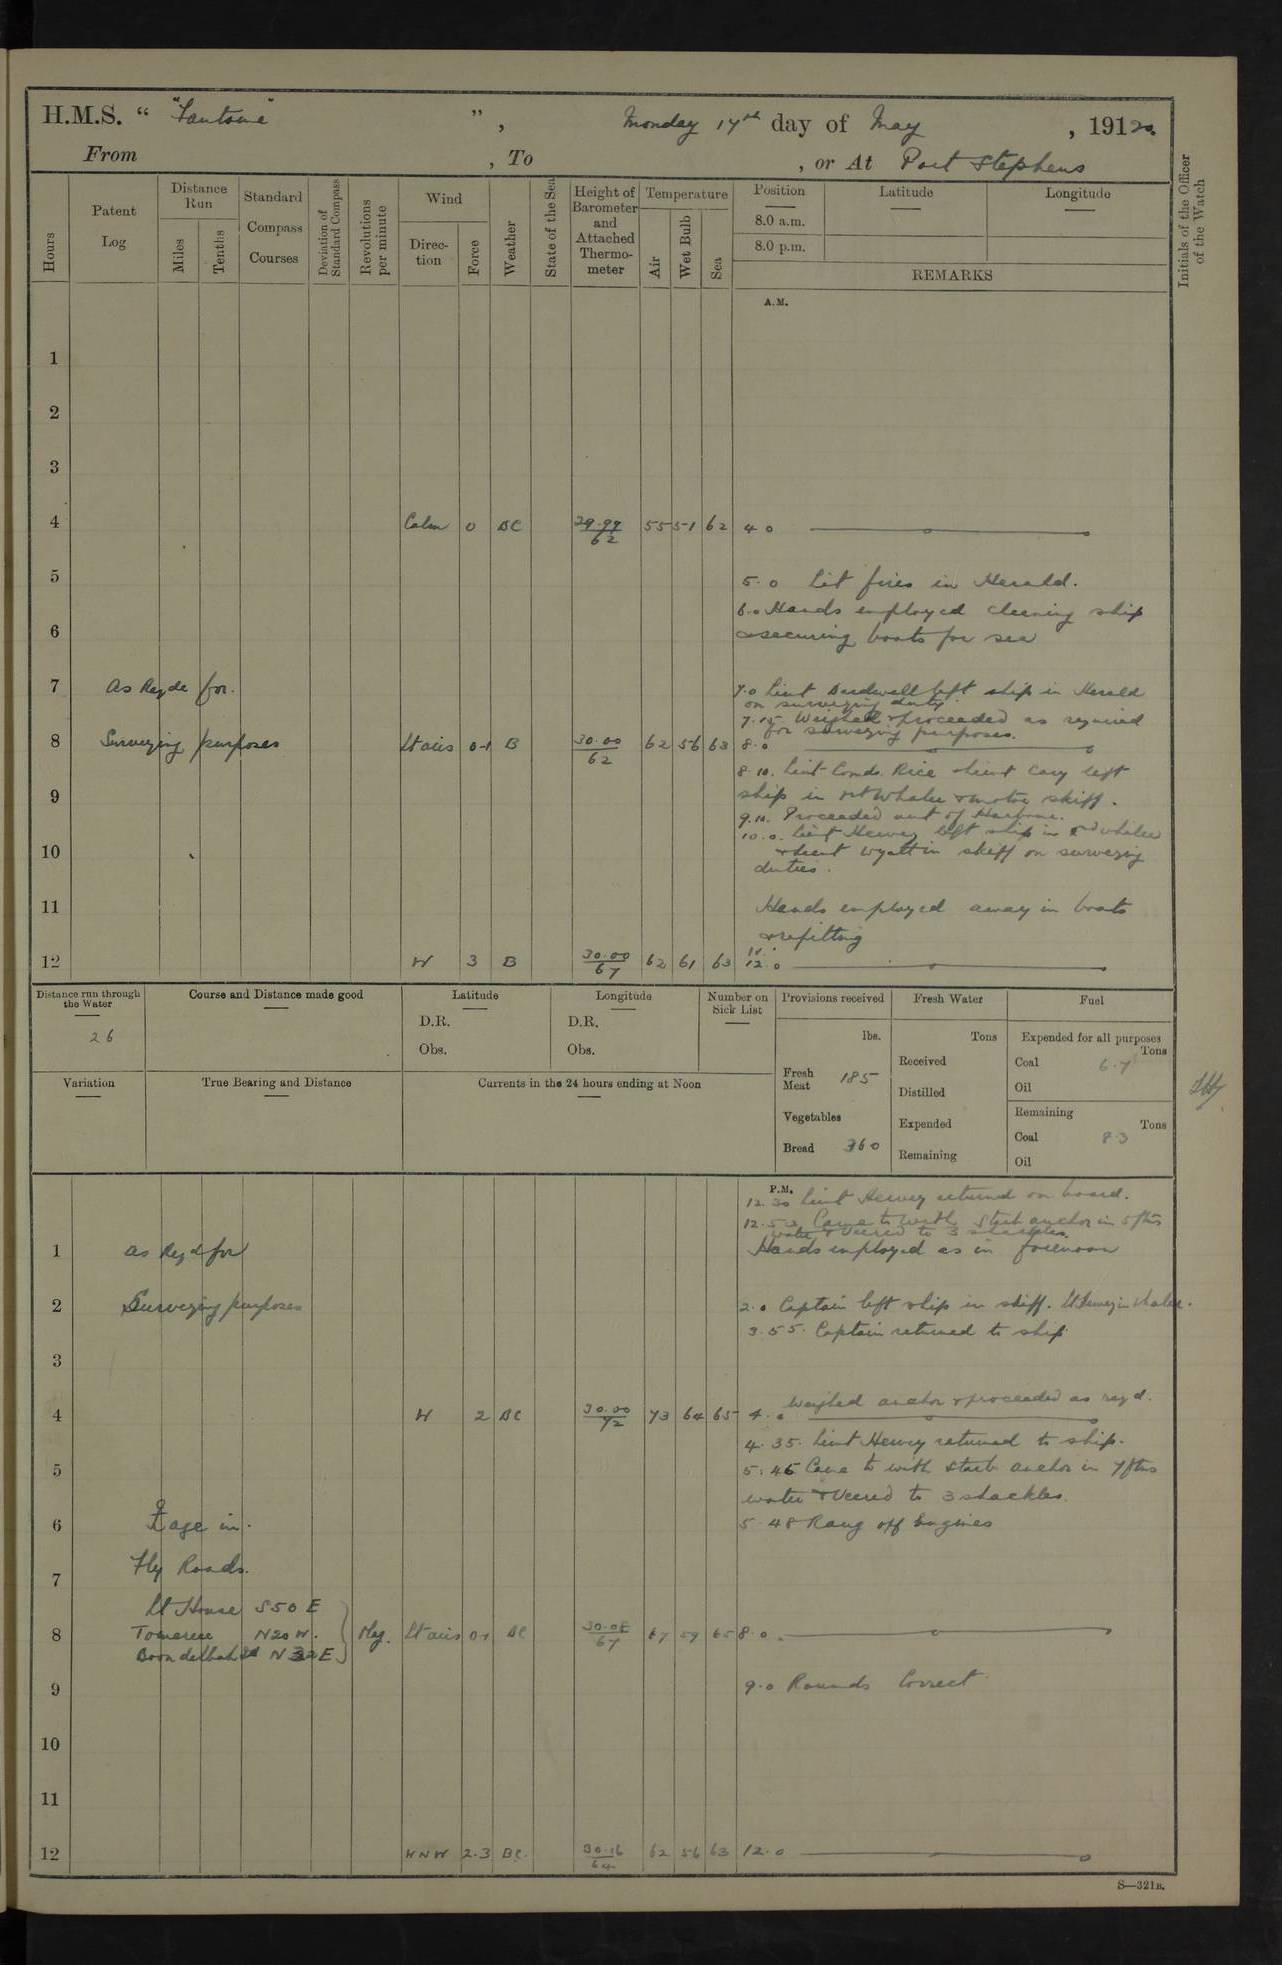 H.M.S. “ "Fantome" ”, Monday 17th day of May, 1912 20.
From , To , or At Port Stephens
Hours
Patent Log
Distance Run
Miles
Tenths
Standard Compass Courses
Deviation of Standard Compass
Revolutions per minute
Wind
Direction
Force
Weather
State of the Sea
Height of Barometer and Attached Thermometer
Temperature
Air
Wet Bulb
Sea
Position
8.0 a.m.
8.0 p.m.
Latitude
Longitude
REMARKS
Initials of the Officer of the Watch
A.M.
1
2
3
4 Calm 0 BC 29.99 62 55 51 62 4 0
5 5.0 Lit fires in Herald.
6.0 Hands employed cleaning ship
6 & securing boats for sea
7 As Reqde for. 7.0 Lieut Bardwell left ship in Herald
on surveying duty.
7.15 Weighed & proceeded as required
for surveying purposes.
8 Surveying purposes Lt airs 0-1 B 30.00 62 62 56 63 8.0
8.10. Lieut Comdr Rice & Lieut Cary left
9 ship in 1st Whaler & motor skiff.
9.10. Proceeded out of Harbour.
10.0. Lieut Hervey left ship in 2nd whaler
10 & Lieut Wyatt in skiff on surveying
duties.
11 Hands employed away in boats
& refitting
12 W 3 B 30.00 67 62 61 63 12.0
Distance run through the Water
26
Course and Distance made good
Latitude
D.R.
Obs.
Longitude
D.R.
Obs.
Number on Sick List
Provisions received
lbs.
Fresh Meat 185
Vegetables
Bread 360
Fresh Water
Tons
Received
Distilled
Expended
Remaining
Fuel
Expended for all purposes
Tons
Coal 6.7
Oil
Remaining
Tons
Coal 83
Oil
Variation
True Bearing and Distance
Currents in the 24 hours ending at Noon
P.M.
12.30 Lieut Hervey returned on board.
12.52 Came to with Starb anchor in 5 fms
water & veered to 3 shackles.
1 as Reqd for Hands employed as in forenoon
2 Surveying purposes 2.0 Captain left ship in skiff. Lt Hervey in whaler.
3.55. Captain returned to ship
3
Weighed anchor & proceeded as reqd.
4 W 2 BC 30.00 72 73 64 65 4.0
4.35. Lieut Hervey returned to ship.
5 5.45 Came to with starb anchor in 7 fms
water & veered to 3 shackles.
6 age in. 5.48 Rang off Engines
7 Fly Roads.
Lt House S50E
8 Tomaree N20W. } Mag. Lt airs 0-1 BC 67 67 59 65 8.0.
Boondelbah Id N32E
9 9.0 Rounds Correct
10
11
12 WNW 2.3 BC. 30.16 64 62 56 63 12.0
S—321B.